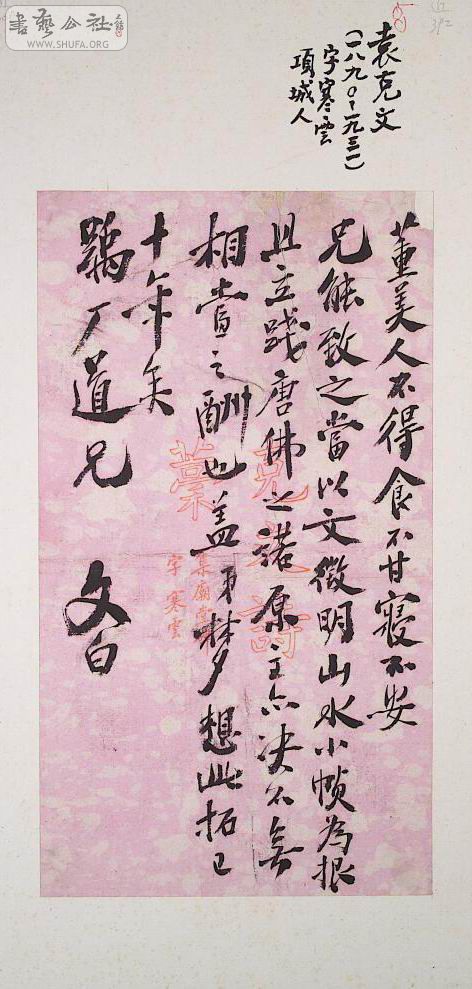 書藝公社
WWW.SHUFA.ORG
袁克文
(一八九〇-一九三一)
字寒雲
項城人
董美人不得食不甘寢不安
兄能致之當以文徵明山水小幀為報
且立踐唐佛之諾原主亦決不無
相當之酬也蓋弟夢想此拓已
十年矣
鶚厂道兄
文白
克文壽
藁
字寒雲